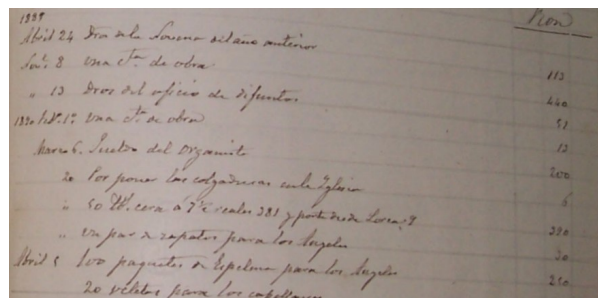 1889 Rvon
Abril 24 Dros de la Novena del año anterior
Novᵉ 8 una cᵗᵃ de obra 113
" 13 Dros del oficio de difuntos 440
1890 Febº 1º una cᵗᵃ de obra 51
Marzo 6 Sueldo del organista 12
20 Por poner las colgaduras en la Iglesia 200
" 50 lb. cera á 7½ reales 381 y porte desde Lorca 9 6
" un par de zapatos para los Angeles 390
Abril 5 100 paquetes de Espelma para los Angeles 30
20 velitas para los capellanes 250